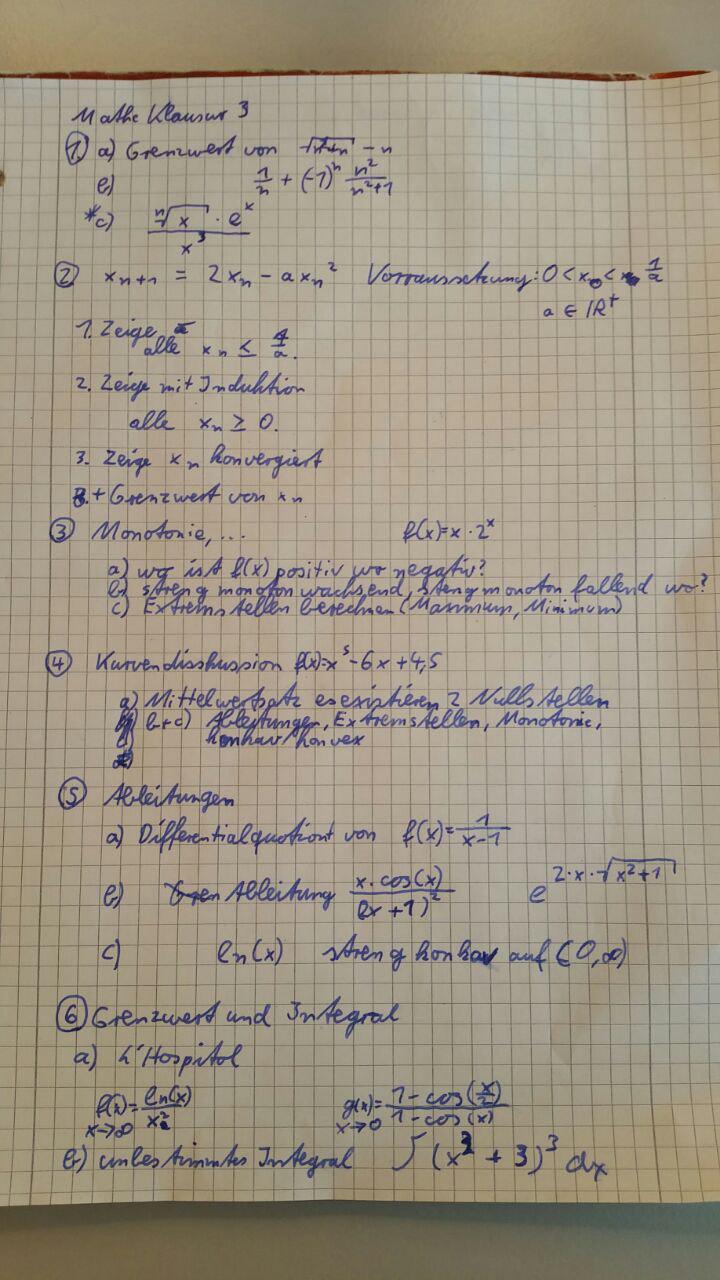 Mathe Klausur 3
① a) Grenzwert von √(n²+n) - n
b) 1/n + (-1)ⁿ n²/(n²+1)
*c) (ⁿ√x · eˣ)/x³
② xₙ₊₁ = 2xₙ - axₙ² Vorraussetzung: 0 < x₀ < 1/a
a ∈ ℝ⁺
1. Zeige
alle xₙ ≤ 1/a.
2. Zeige mit Induktion
alle xₙ ≥ 0.
3. Zeige xₙ konvergiert
+ Grenzwert von xₙ
③ Monotonie, ... f(x)=x·2ˣ
a) wo ist f(x) positiv wo negativ?
b) streng monoton wachsend, streng monoton fallend wo?
c) Extremstellen berechnen (Maximum, Minimum)
④ Kurvendisskussion f(x)=x⁵-6x+4,5
a) Mittelwertsatz es existieren 2 Nullstellen
b+c) Ableitungen, Extremstellen, Monotonie,
konkav/konvex
⑤ Ableitungen
a) Differentialquotient von f(x)=1/(x-1)
b) Ableitung (x·cos(x))/(x+1)² e^(2·x·√(x²+1))
c) ln(x) streng konkav auf (0,∞)
⑥ Grenzwert und Integral
a) L'Hospital
f(x)=ln(x)/x² g(x)=(1-cos(x/2))/(1-cos(x))
x→∞ x→0
b) unbestimmtes Integral ∫(x²+3)³ dx